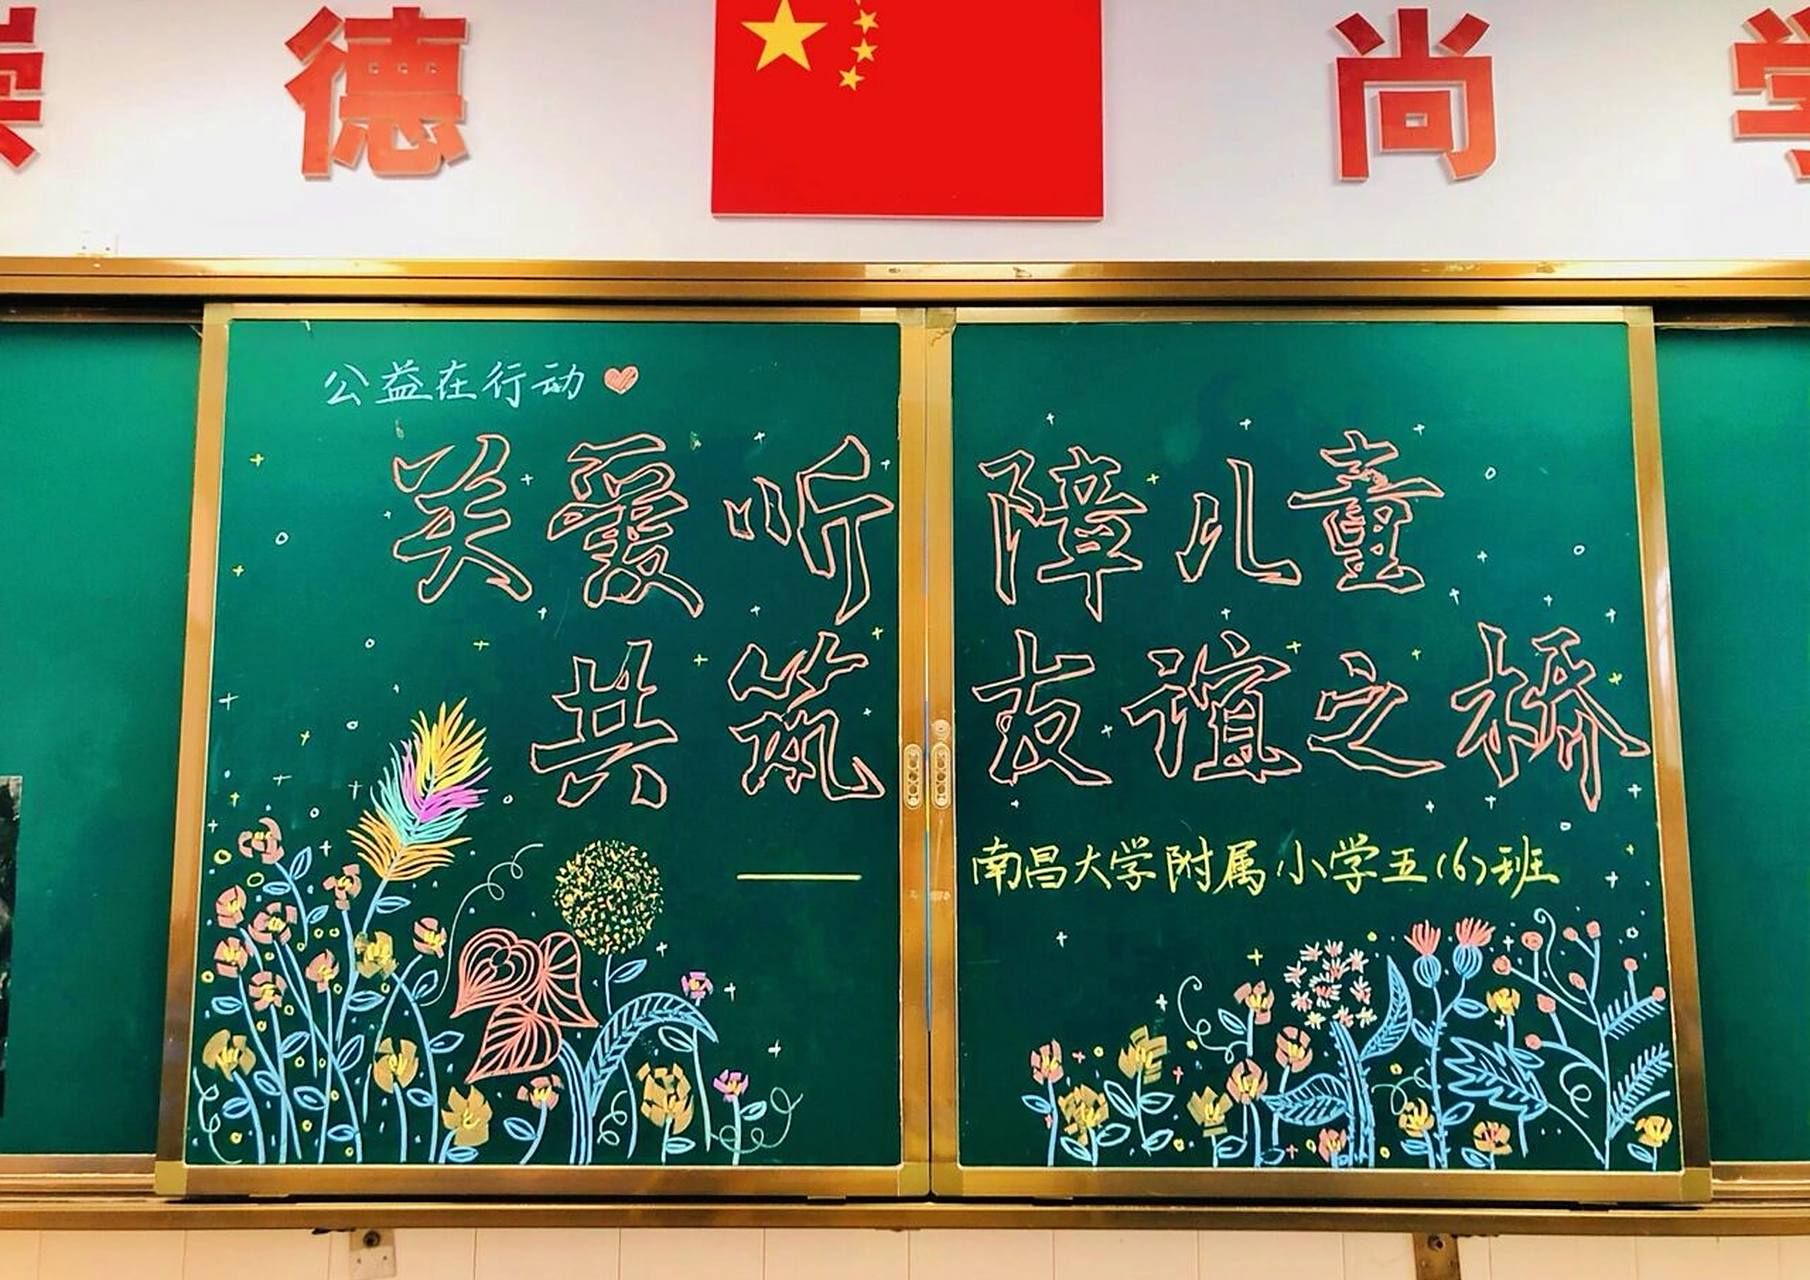 崇德 尚学
公益在行动
关爱听障儿童
共筑友谊之桥
——南昌大学附属小学五(6)班